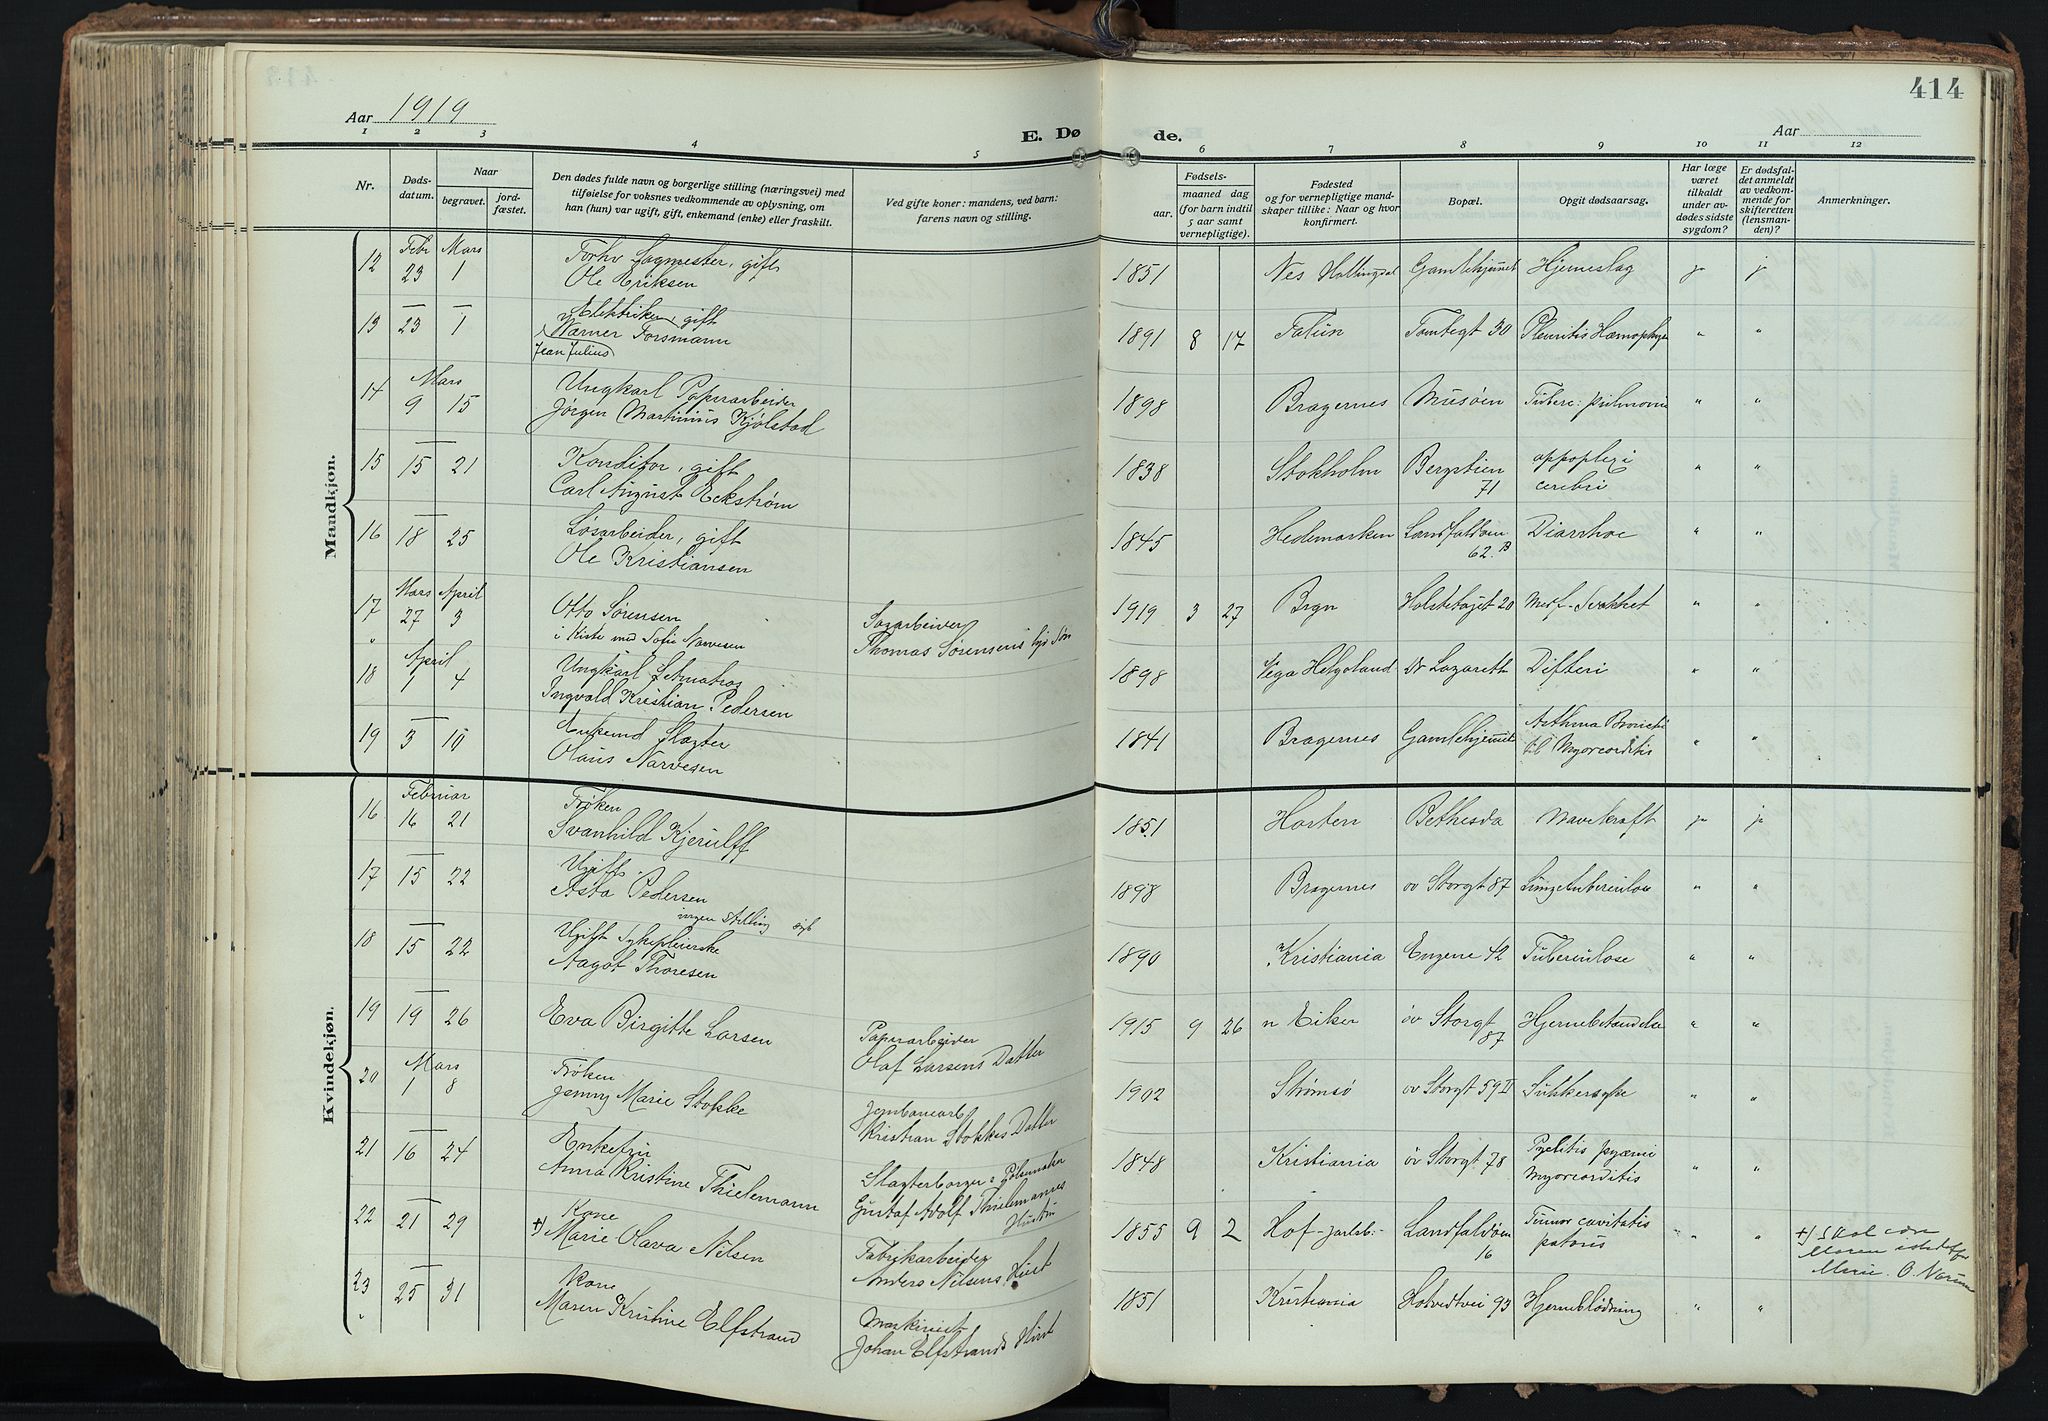 414
Aar 1919
E. Dø
de.
Aar
1 2 3 4 5 6 7 8 9 10 11 12
Nr.
Døds-
datum.
Naar
begravet.
jord-
fæstet.
Den dødes fulde navn og borgerlige stilling (næringsvei) med
tilføielse for voksnes vedkommende av oplysning, om
han (hun) var ugift, gift, enkemand (enke) eller fraskilt.
Ved gifte koner: mandens, ved barn:
farens navn og stilling.
Fødsels-
aar.
maaned dag
(for barn indtil
5 aar samt
vernepligtige).
Fødested
og for vernepligtige mand-
skaper tillike: Naar og hvor
konfirmert.
Bopæl.
Opgit dødsaarsag.
Har læge
været
tilkaldt
under av-
dødes sidste
sygdom?
Er dødsfal-
det anmeldt
av vedkom-
mende for
skifteretten
(lensman-
den)?
Anmerkninger.
Mandkjøn.
12 Febr 23 Mars 1
Forhv Sagmester, gift
Ole Eriksen
1851 Nes Hallingdal Gamlehjemmet Hjerneslag ja ja
13 23 1
Elektriker, gift
Werner Forsmann
Jean Julius
1891 8 17 Falun Tomtegt 30 Pleuritis " "
14 Mars 9 15
Ungkarl Papirarbeider
Jørgen Martinius Kjølstad
1898 Bragernes Musøen Tuberc: pulmonum " "
15 15 21
Konditor, gift
Carl August Eckstrøm
1838 Stokholm Bergstien 71 appoplexi
cerebri " "
16 18 25
Løsarbeider, gift
Ole Kristiansen
1845 Hedemarken Landfaldøen 62. B Diarrhoe " "
17 Mars 27 April 3
Otto Sørensen
i Kiste med Sofie Narvesen
Sagarbeider
Thomas Sørensens Søn
1919 3 27 Brgn 20 " "
18 April 1 4
Ungkarl Letmatros
Ingvald Kristian Pedersen
1898 Vega Helgeland Dr Lazareth Difteri " "
19 3 10
Enkemd Slagter
Olaus Narvesen
1841 Bragernes Gamlehjemmet Asthma
Myocarditis " "
Kvindekjøn.
16 Februar 16 21
Frøken
Svanhild Kjerulff
1851 Horten Bethesda Mavekræft ja ja
17 15 22
Ugift.
Asta Pedersen
ingen stilling
1898 Bragernes øv Storgt 87 Lungetuberculose " "
18 15 22
Ugift Sykepleierske
Aagot Thoresen
1890 Kristiania Engene 42 Tuberculose " "
19 19 26
Eva Birgitte Larsen
Papirarbeider
Olaf Larsens Datter
1915 9 26 n Eiker øv Storgt 87 Hjernebetændelse " "
20 Mars 1 8
Frøken
Jenny Marie Stokke
Jernbanearb
Kristian Stokkes Datter
1902 Strømsø øv Storgt 59 II Sukkersyke " "
21 16 24
Enkefru
Anna Kristine Thielemann
Slagterborger
Gustaf Adolf Thielemannes
Hustru
1848 Kristiania øv Storgt 78 Pyelitis pyæmi
Myocarditis " "
22 21 29
Kone
+) Marie Olava Nilsen
Fabrikarbeider
Anders Nilsens Hust
1855 9 2 Hof-Jarlsb: Landfaldøen 16 Tumor cavitatis " "
+) Skal være
Maren istedetfor
Marie. O.
23 25 31
Kone
Maren Kristine Elfstrand
Maskinist
Johan Elfstrands Hust
1851 Kristiania Hotvedtvei 93 Hjerneblødning " "